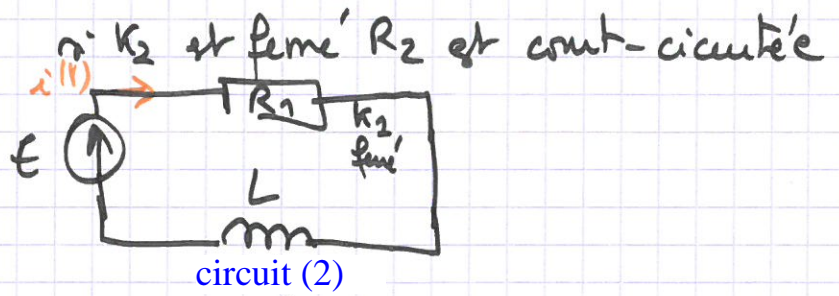 si K2 est fermé R2 est court-circuitée
i(1)
R1
K2
fermé
E
L
circuit (2)